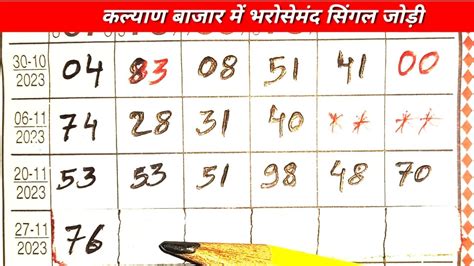 कल्याण बाजार में भरोसेमंद सिंगल जोड़ी
30-10 2023 04 83 08 51 41 00
06-11 2023 74 28 31 40 ** **
20-11 2023 53 53 51 98 48 70
27-11 2023 76